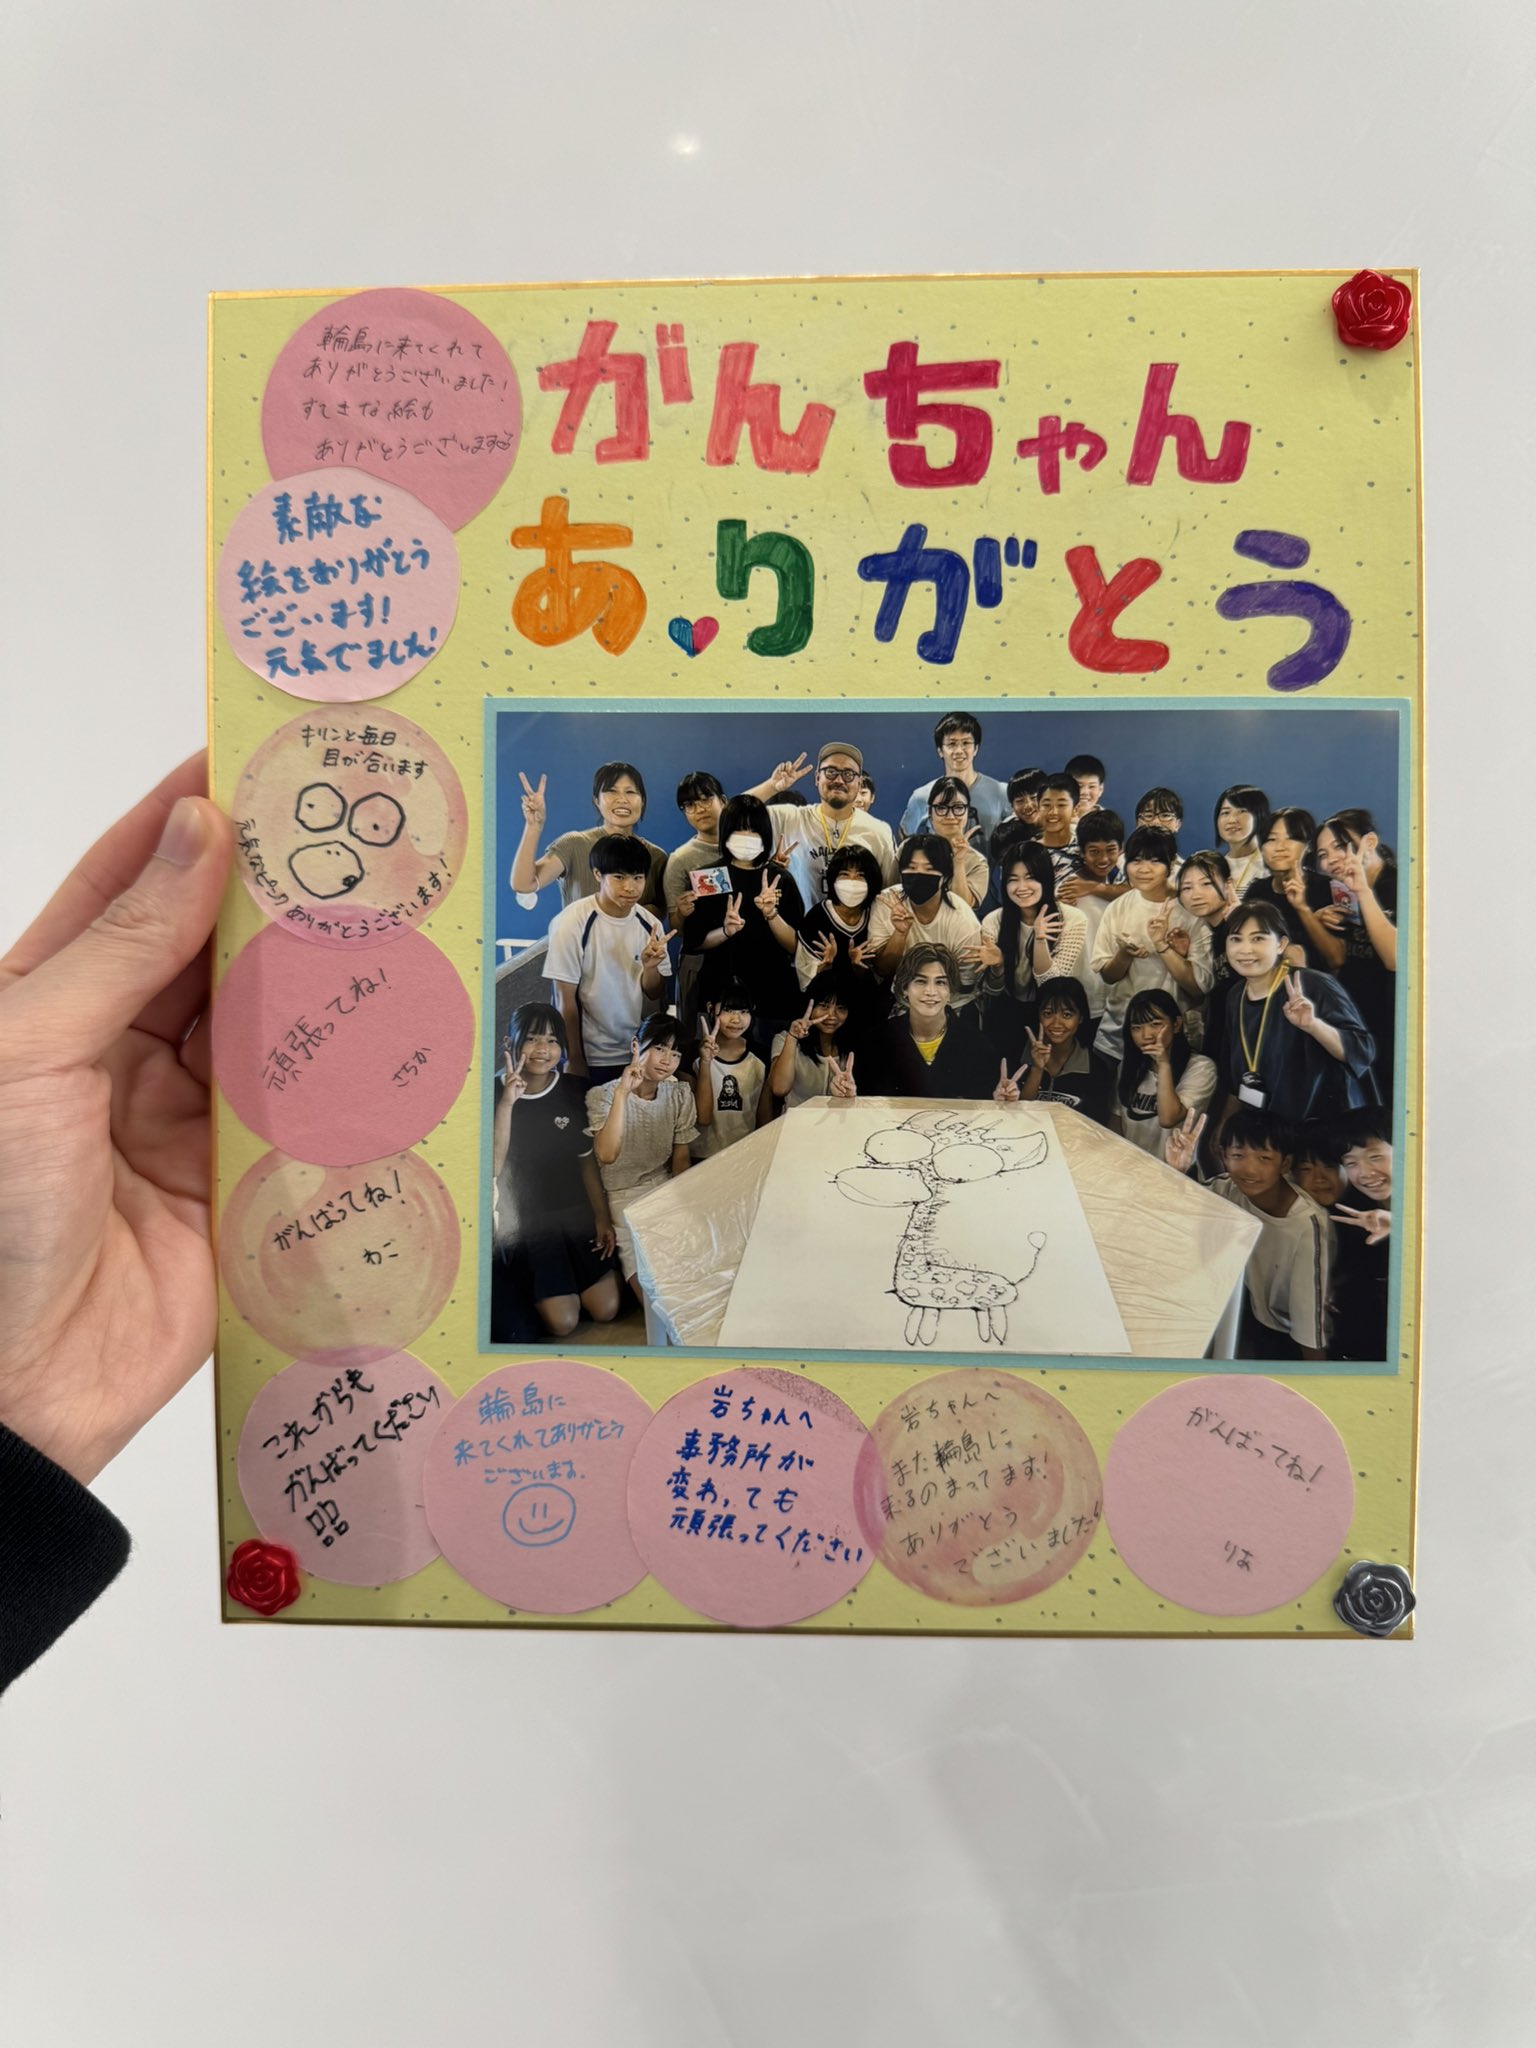 がんちゃん
ありがとう
輪島に来てくれて
ありがとうございました!
すてきな絵も
ありがとうございます
素敵な
絵をありがとう
ございます!
元気でました!
キリンと毎日
目が合います
元気なピック
ありがとうございます!
頑張ってね!
さちか
がんばってね!
わこ
これからも
がんばってください
輪島に
来てくれてありがとう
ございます。
岩ちゃんへ
事務所が
変わっても
頑張ってください
岩ちゃんへ
また輪島に
来るのまってます!
ありがとう
ございました!
がんばってね!
りお